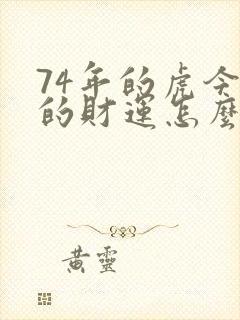 74年的虎今
的財運怎麼
黃靈